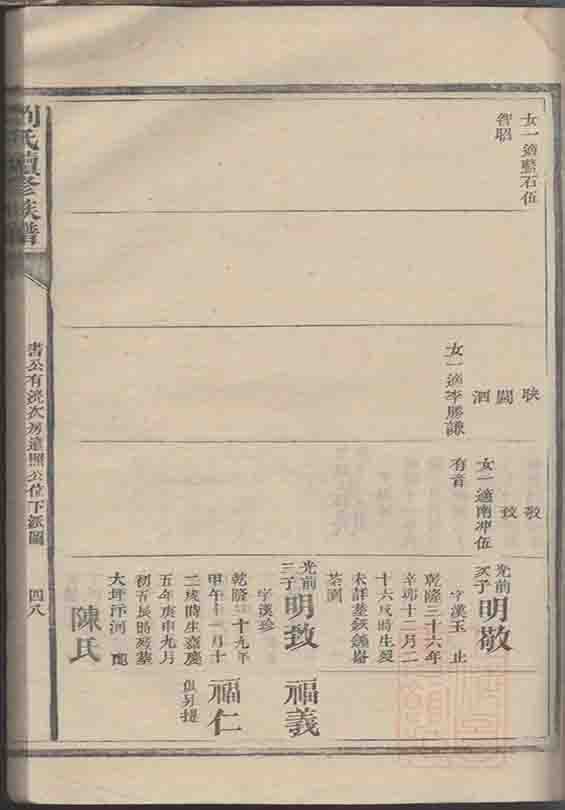 女一適藍石伍
智昭
映
闖
泗
女一適李勝謙
敬
致
女一適南冲伍
有音
光前
次子
明敬
字漢玉 止
乾隆三十六年
辛卯十二月二
十六戌時生歿
未詳葬
茶測
光前
三子
明致 福義
字漢珍
乾隆三十九年
甲午十一月十 福仁
二戌時生嘉慶 俱另提
五年庚申九月
初五辰時歿葬
大坪汙河
陳氏
劉氏續修族譜
書公有浇次房遠照公位下派圖
四八